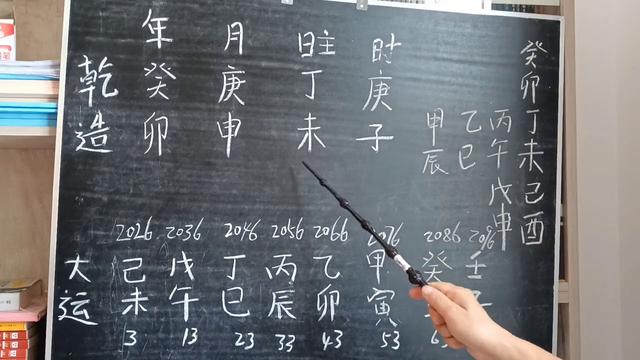 年 月 日主 时
乾 癸 庚 丁 庚
造 卯 申 未 子
癸卯丁未己酉
丙午戊申
乙巳
甲辰
2026 2036 2046 2056 2066 2076 2086 2096
大 己 戊 丁 丙 乙 甲 癸 壬
运 未 午 巳 辰 卯 寅
3 13 23 33 43 53